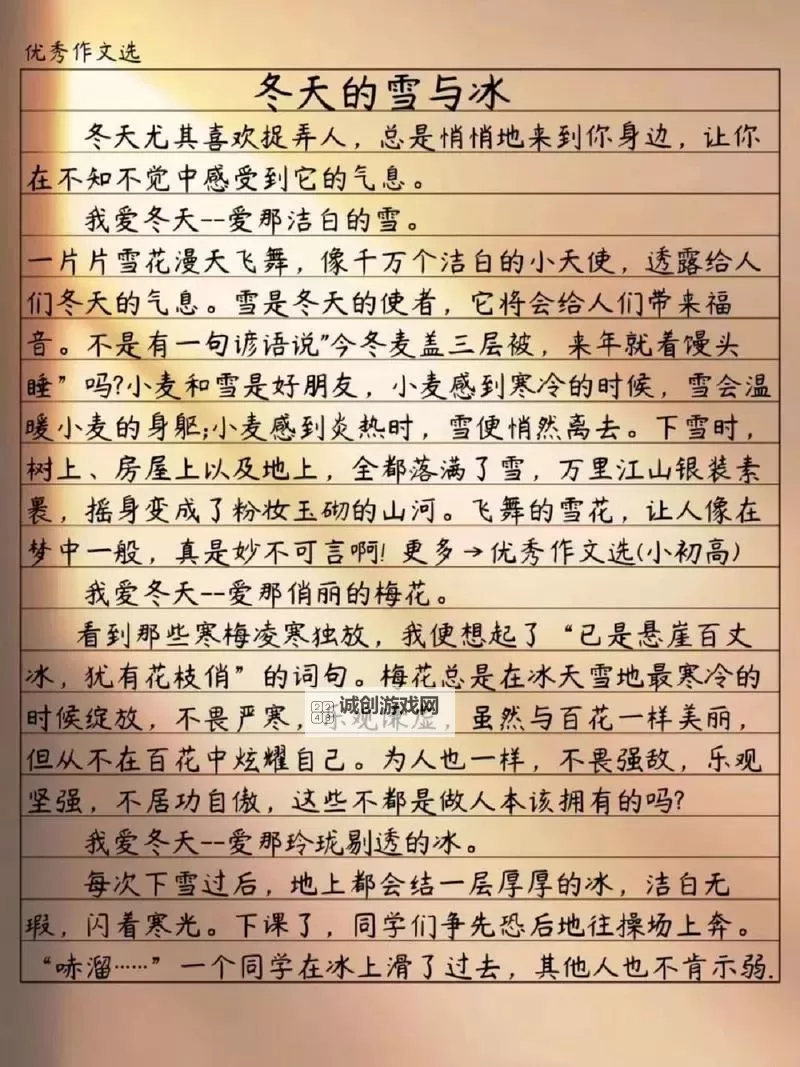 优秀作文选
冬天的雪与冰
冬天尤其喜欢捉弄人，总是悄悄地来到你身边，让你
在不知不觉中感受到它的气息。
我爱冬天--爱那洁白的雪。
一片片雪花漫天飞舞，像千万个洁白的小天使，透露给人
们冬天的气息。雪是冬天的使者，它将会给人们带来福
音。不是有一句谚语说"今冬麦盖三层被，来年就着馒头
睡”吗?小麦和雪是好朋友，小麦感到寒冷的时候，雪会温
暖小麦的身躯;小麦感到炎热时，雪便悄然离去。下雪时，
树上、房屋上以及地上，全都落满了雪，万里江山银装素
裹，摇身变成了粉妆玉砌的山河。飞舞的雪花，让人像在
梦中一般，真是妙不可言啊! 更多→优秀作文选(小初高)
我爱冬天--爱那俏丽的梅花。
看到那些寒梅凌寒独放，我便想起了“已是悬崖百丈
冰，犹有花枝俏”的词句。梅花总是在冰天雪地最寒冷的
时候绽放，不畏严寒，乐观谦虚，虽然与百花一样美丽，
诚创游戏网
但从不在百花中炫耀自己。为人也一样，不畏强敌，乐观
坚强，不居功自傲，这些不都是做人本该拥有的吗?
我爱冬天--爱那玲珑剔透的冰。
每次下雪过后，地上都会结一层厚厚的冰，洁白无
瑕，闪着寒光。下课了，同学们争先恐后地往操场上奔。
“哧溜……”一个同学在冰上滑了过去，其他人也不肯示弱.